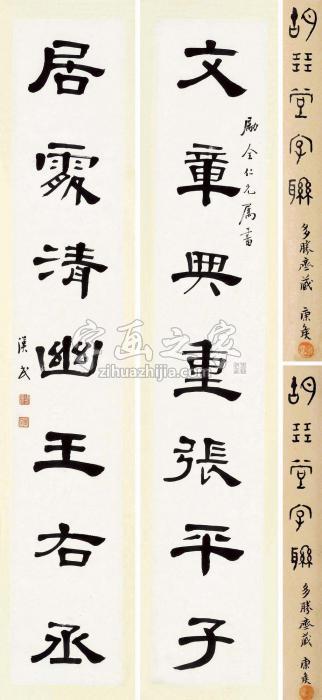 胡㠭堂字聯
多勝齋藏 康矦
胡㠭堂字聯
多勝齋藏 康矦
文章典重張平子
仁兄屬書
居處清幽王右丞
漢民
字画之家
zihuazhijia.com